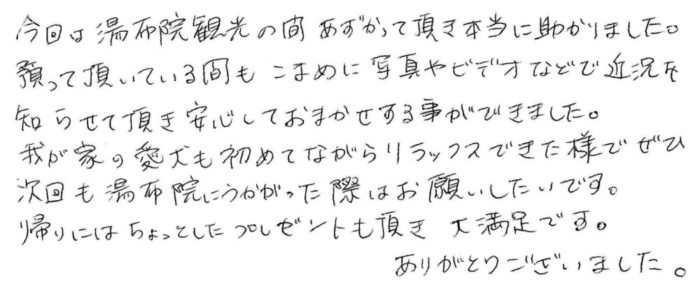 今回は湯布院観光の間あずかって頂き本当に助かりました。
預って頂いている間もこまめに写真やビデオなどで近況を
知らせて頂き安心しておまかせする事ができました。
我が家の愛犬も初めてながらリラックスできた様でぜひ
次回も湯布院にうかがった際はお願いしたいです。
帰りにはちょっとしたプレゼントも頂き大満足です。
ありがとうございました。